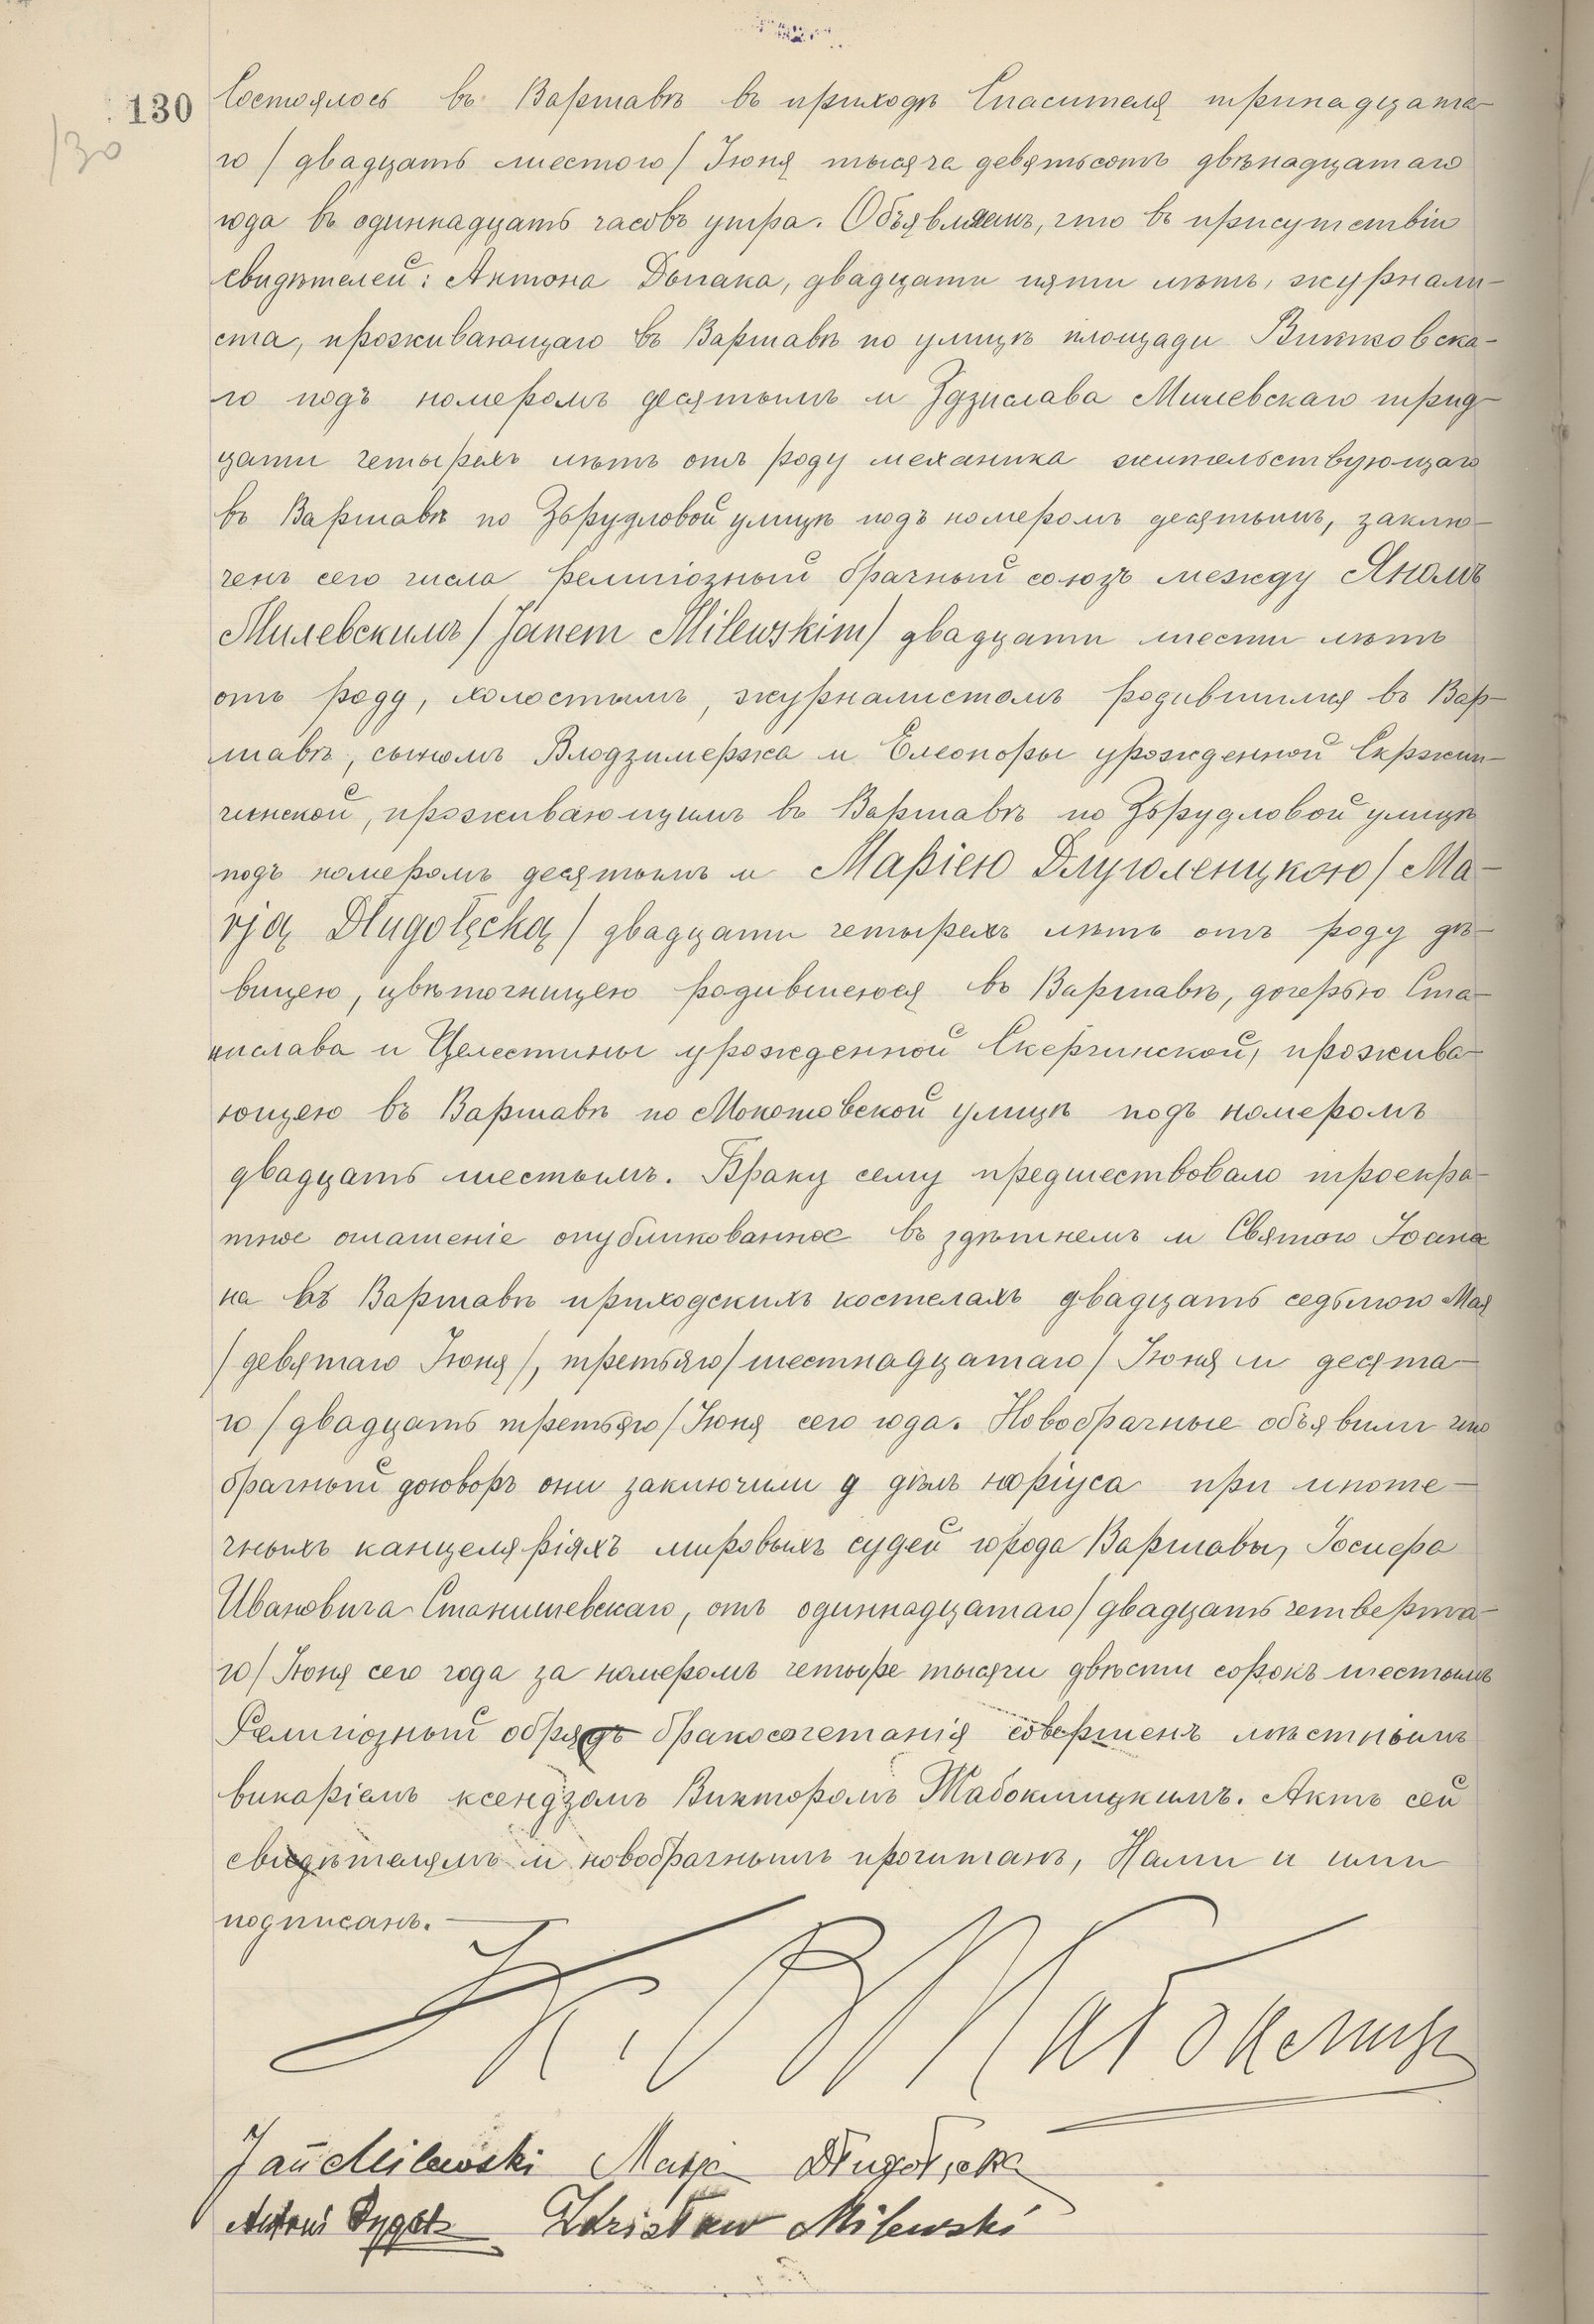 130 Состоялось въ Варшавѣ въ приходѣ Спасителя тринадцата-
130
го / двадцать шестого / Іюня тысяча девятьсотъ двѣнадцатаго
года въ одиннадцать часовъ утра. Объявляемъ, что въ присутствіи
свидѣтелей: Антона , двадцати пяти лѣтъ, журнали-
ста, проживающаго въ Варшавѣ по улицѣ площади Витковска-
го подъ номеромъ десятымъ и Здзислава Милевскаго трид-
цати четырехъ лѣтъ отъ роду механика жительствующаго
въ Варшавѣ по Зърудловой улицѣ подъ номеромъ десятымъ, заклю-
ченъ сего числа религіозный брачный союзъ между Яномъ
Милевскимъ / Janem Milewskim / двадцати шести лѣтъ
отъ роду, холостымъ, журналистомъ родившимся въ Вар-
шавѣ, сыномъ Влодзимержа и Елеоноры урожденной Скржин-
чинской, проживающимъ въ Варшавѣ по Зърудловой улицѣ
подъ номеромъ десятымъ и Маріею Длуголенцкою / Ma-
rją Długołęcką / двадцати четырехъ лѣтъ отъ роду дѣ-
вицею, цвѣточницею родившеюся въ Варшавѣ, дочерью Ста-
нислава и Целестины урожденной Скерчинской, прожива-
ющею въ Варшавѣ по Мокотовской улицѣ подъ номеромъ
двадцать шестымъ. Браку сему предшествовало троекра-
тное оглашеніе опубликованное въ здѣшнемъ и Святого Іоан
на въ Варшавѣ приходскихъ костелахъ двадцать седьмого Мая
/ девятаго Іюня /, третьяго / шестнадцатаго / Іюня и десята-
го / двадцать третьяго / Іюня сего года. Новобрачные объявили что
брачный договоръ они заключили у при ипоте-
чныхъ канцеляріяхъ мировыхъ судей города Варшавы, Іосифа
Ивановича Станишевскаго, отъ одиннадцатаго / двадцать четверта-
го / Іюня сего года за номеромъ четыре тысячи двѣсти сорокъ шестымъ
Религіозный обрядъ бракосочетанія совершенъ мѣстнымъ
викаріемъ ксендзомъ Викторомъ Жабоклицкимъ. Актъ сей
свидѣтелямъ и новобрачнымъ прочитанъ, Нами и ими
подписанъ. —
Jan Milewski Marja Długołęcka
Antoni Zdzisław Milewski